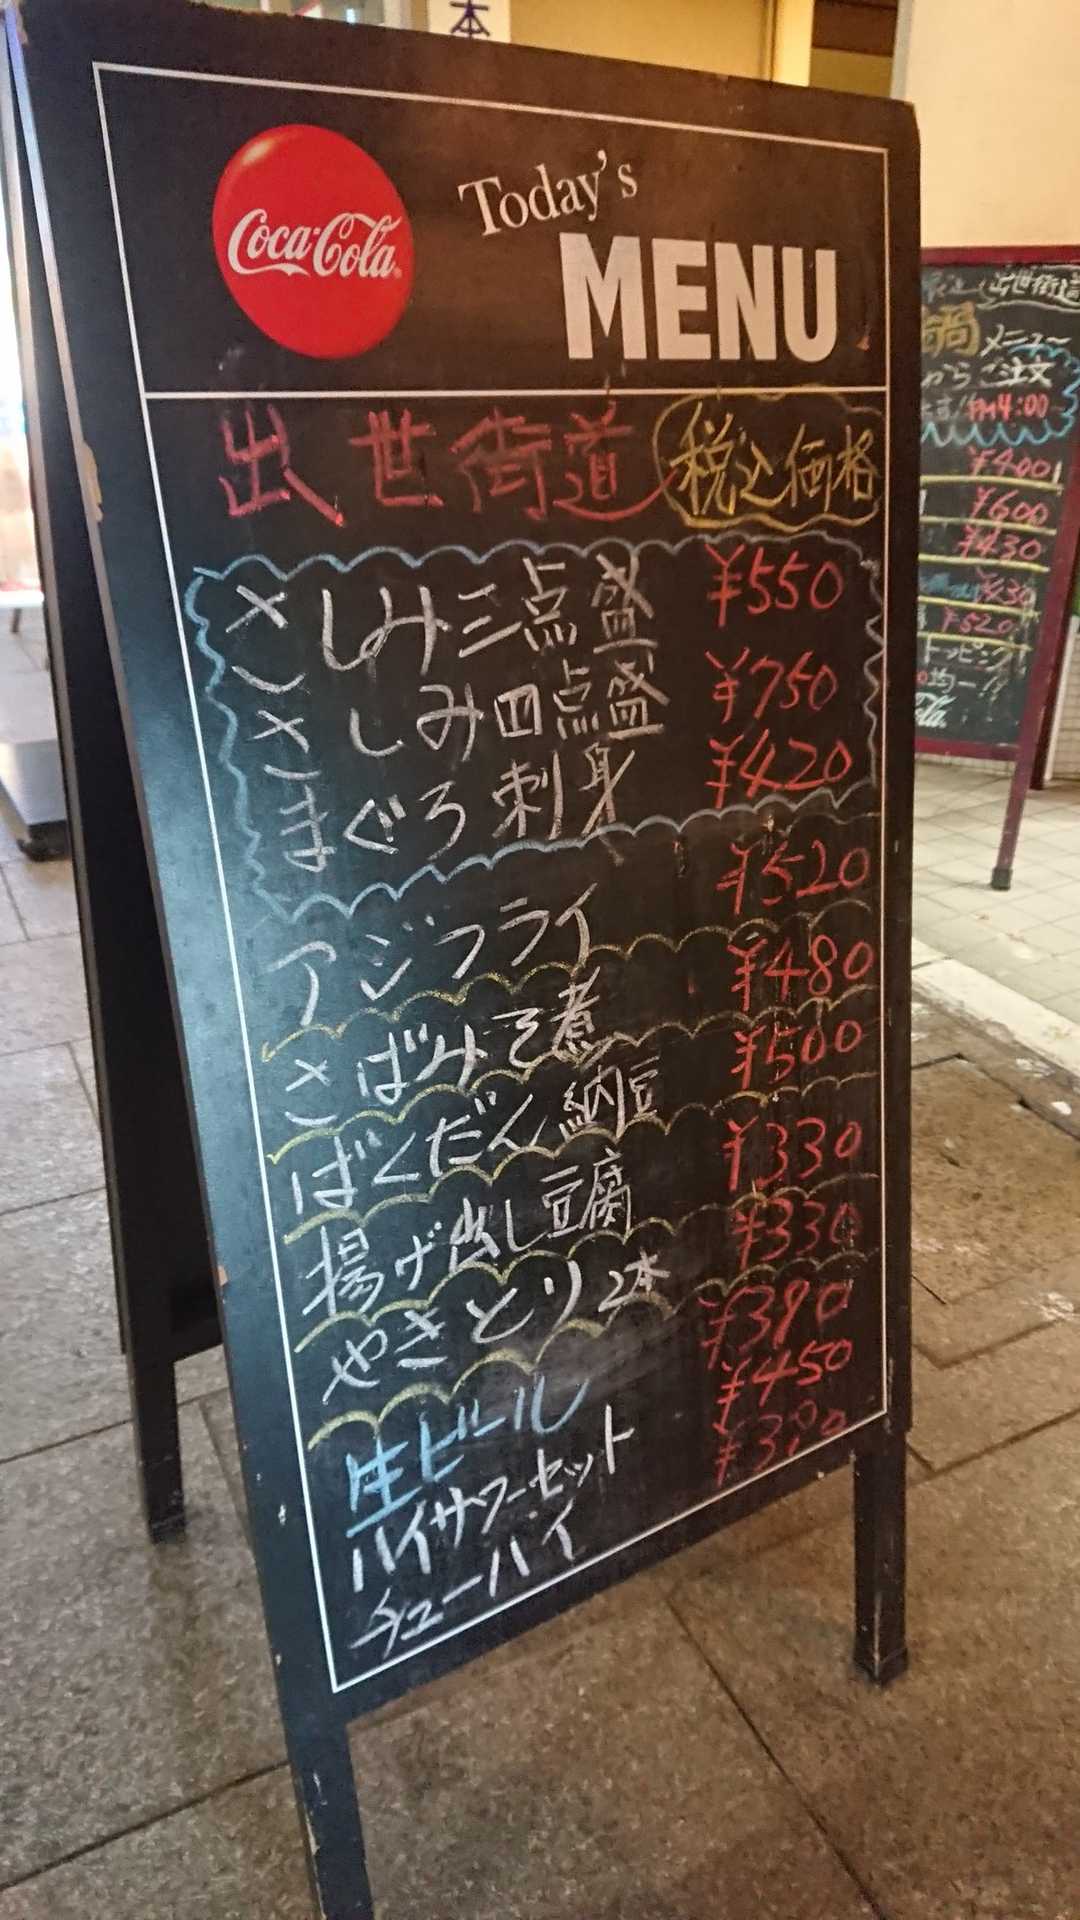 本
Coca-Cola
Today's
MENU
出世街道 税込価格
さしみ三点盛 ¥550
さしみ四点盛 ¥750
まぐろ刺身 ¥420
アジフライ ¥520
さばみそ煮 ¥480
ばくだん納豆 ¥500
揚げ出し豆腐 ¥330
やきとり2本 ¥330
生ビール ¥390
ハイサワーセット ¥450
チューハイ
出世街道
鍋メニュー
からご注文
PM4:00
¥400
¥600
¥430
¥430
¥520
トッピング
均一